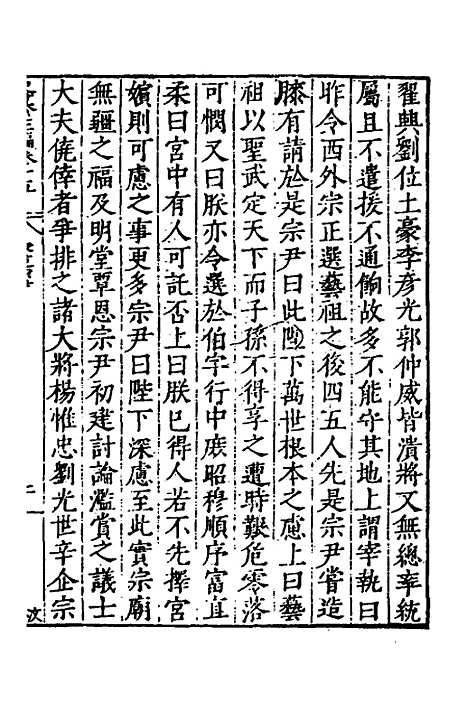 翟興劉位土豪李彥光郭仲威皆潰將又無總率統
屬且不遣援不通餉故多不能守其地上謂宰執曰
昨令西外宗正選藝祖之後四五人先是宗尹嘗造
膝有請於是宗尹曰此陛下萬世根本之慮上曰藝
祖以聖武定天下而子孫不得享之遭時艱危零落
可憫又曰朕亦令選於伯字行中庻昭穆順序富直
柔曰宮中有人可託否上曰朕已得人若不先擇宮
嬪則可慮之事更多宗尹曰陛下深慮至此實宗廟
無疆之福及明堂覃恩宗尹初建討論濫賞之議士
大夫僥倖者爭排之諸大將楊惟忠劉光世辛企宗